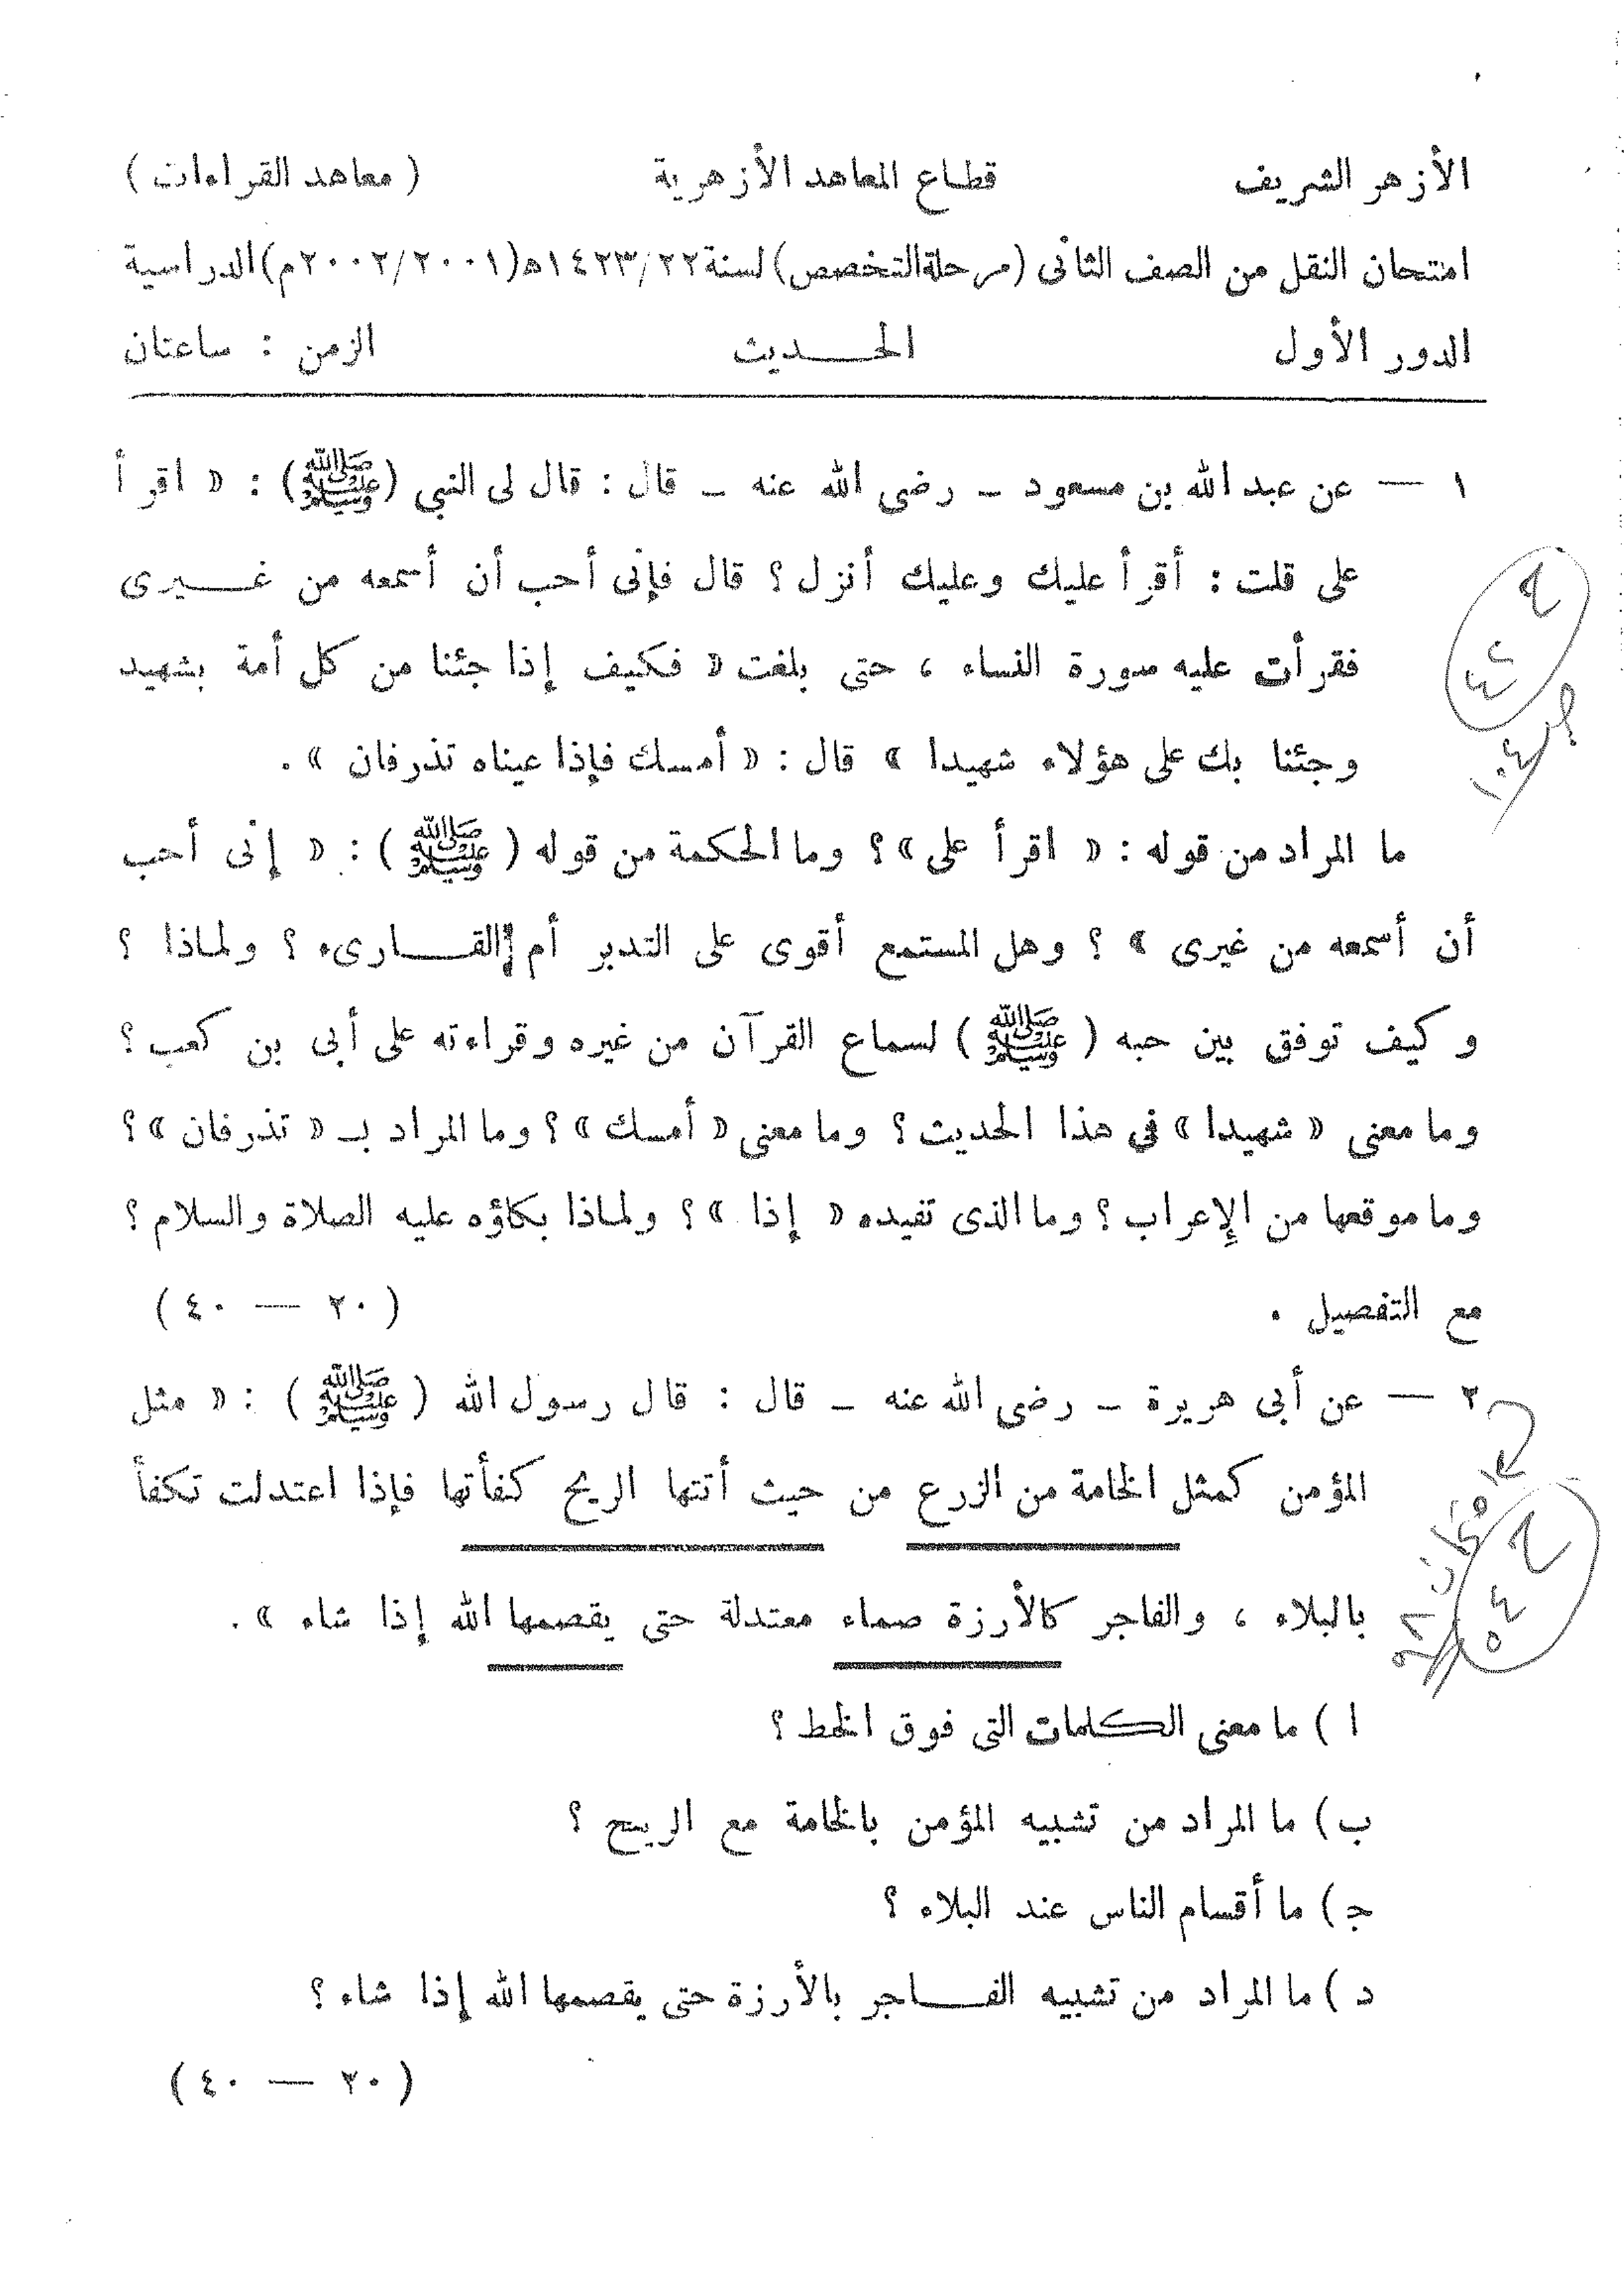 الأزهر الشريف قطاع المعاهد الأزهرية ( معاهد القراءات )
امتحان النقل من الصف الثانى (مرحلة التخصص) لسنة ١٤٢٣/٢٢هـ (٢٠٠٢/٢٠٠١م) الدراسية
الدور الأول الحـــديث الزمن : ساعتان
١ — عن عبد الله بن مسعود – رضى الله عنه – قال : قال لى النبي (ﷺ) : « اقرأ
على قلت : أقرأ عليك وعليك أنزل ؟ قال فإنى أحب أن أسمعه من غـــيرى
فقرأت عليه سورة النساء ، حتى بلغت « فكيف إذا جئنا من كل أمة بشهيد
وجئنا بك على هؤلاء شهيدا » قال : « أمسك فإذا عيناه تذرفان » .
ح
٤٢
ما المراد من قوله : « اقرأ على » ؟ وما الحكمة من قوله ( ﷺ ) : « إنى أحب
أن أسمعه من غيرى » ؟ وهل المستمع أقوى على التدبر أم القـــارىء ؟ ولماذا ؟
وكيف توفق بين حبه ( ﷺ ) لسماع القرآن من غيره وقراءته على أبى بن كعب ؟
وما معنى « شهيدا » فى هذا الحديث ؟ وما معنى « أمسك » ؟ وما المراد بـ « تذرفان » ؟
وما موقعها من الإعراب ؟ وما الذى تفيده « إذا » ؟ ولماذا بكاؤه عليه الصلاة والسلام ؟
مع التفصيل . ( ٢٠ — ٤٠ )
٢ — عن أبى هريرة – رضى الله عنه – قال : قال رسول الله ( ﷺ ) : « مثل
المؤمن كمثل الخامة من الزرع من حيث أتتها الريح كفأتها فإذا اعتدلت تكفأ
بالبلاء ، والفاجر كالأرزة صماء معتدلة حتى يقصمها الله إذا شاء » .
ح
٤٥
ا ) ما معنى الكلمات التى فوق الخط ؟
ب ) ما المراد من تشبيه المؤمن بالخامة مع الريح ؟
جـ ) ما أقسام الناس عند البلاء ؟
د ) ما المراد من تشبيه الفـــاجر بالأرزة حتى يقصمها الله إذا شاء ؟
( ٢٠ — ٤٠ )